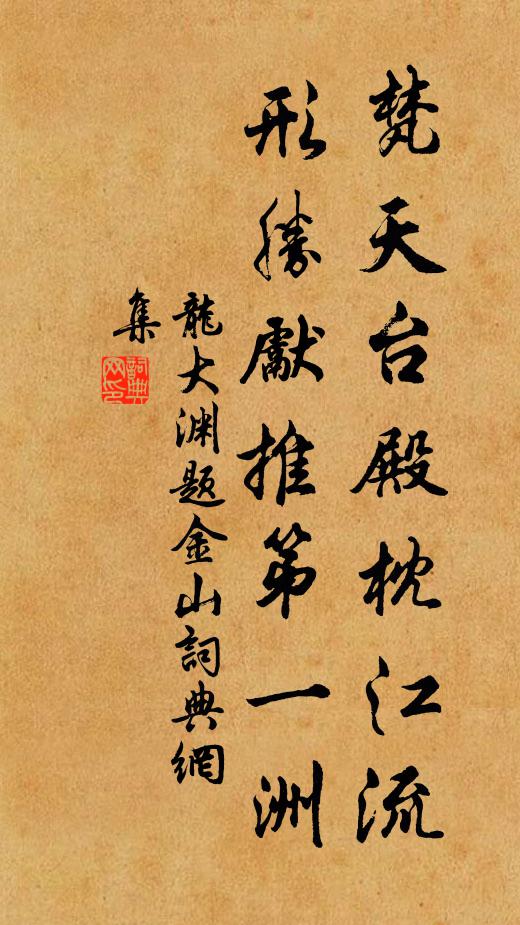 梵天台殿枕江流
形勝獻推第一洲
龍大渊题金山詞典網
集
詞典
网印